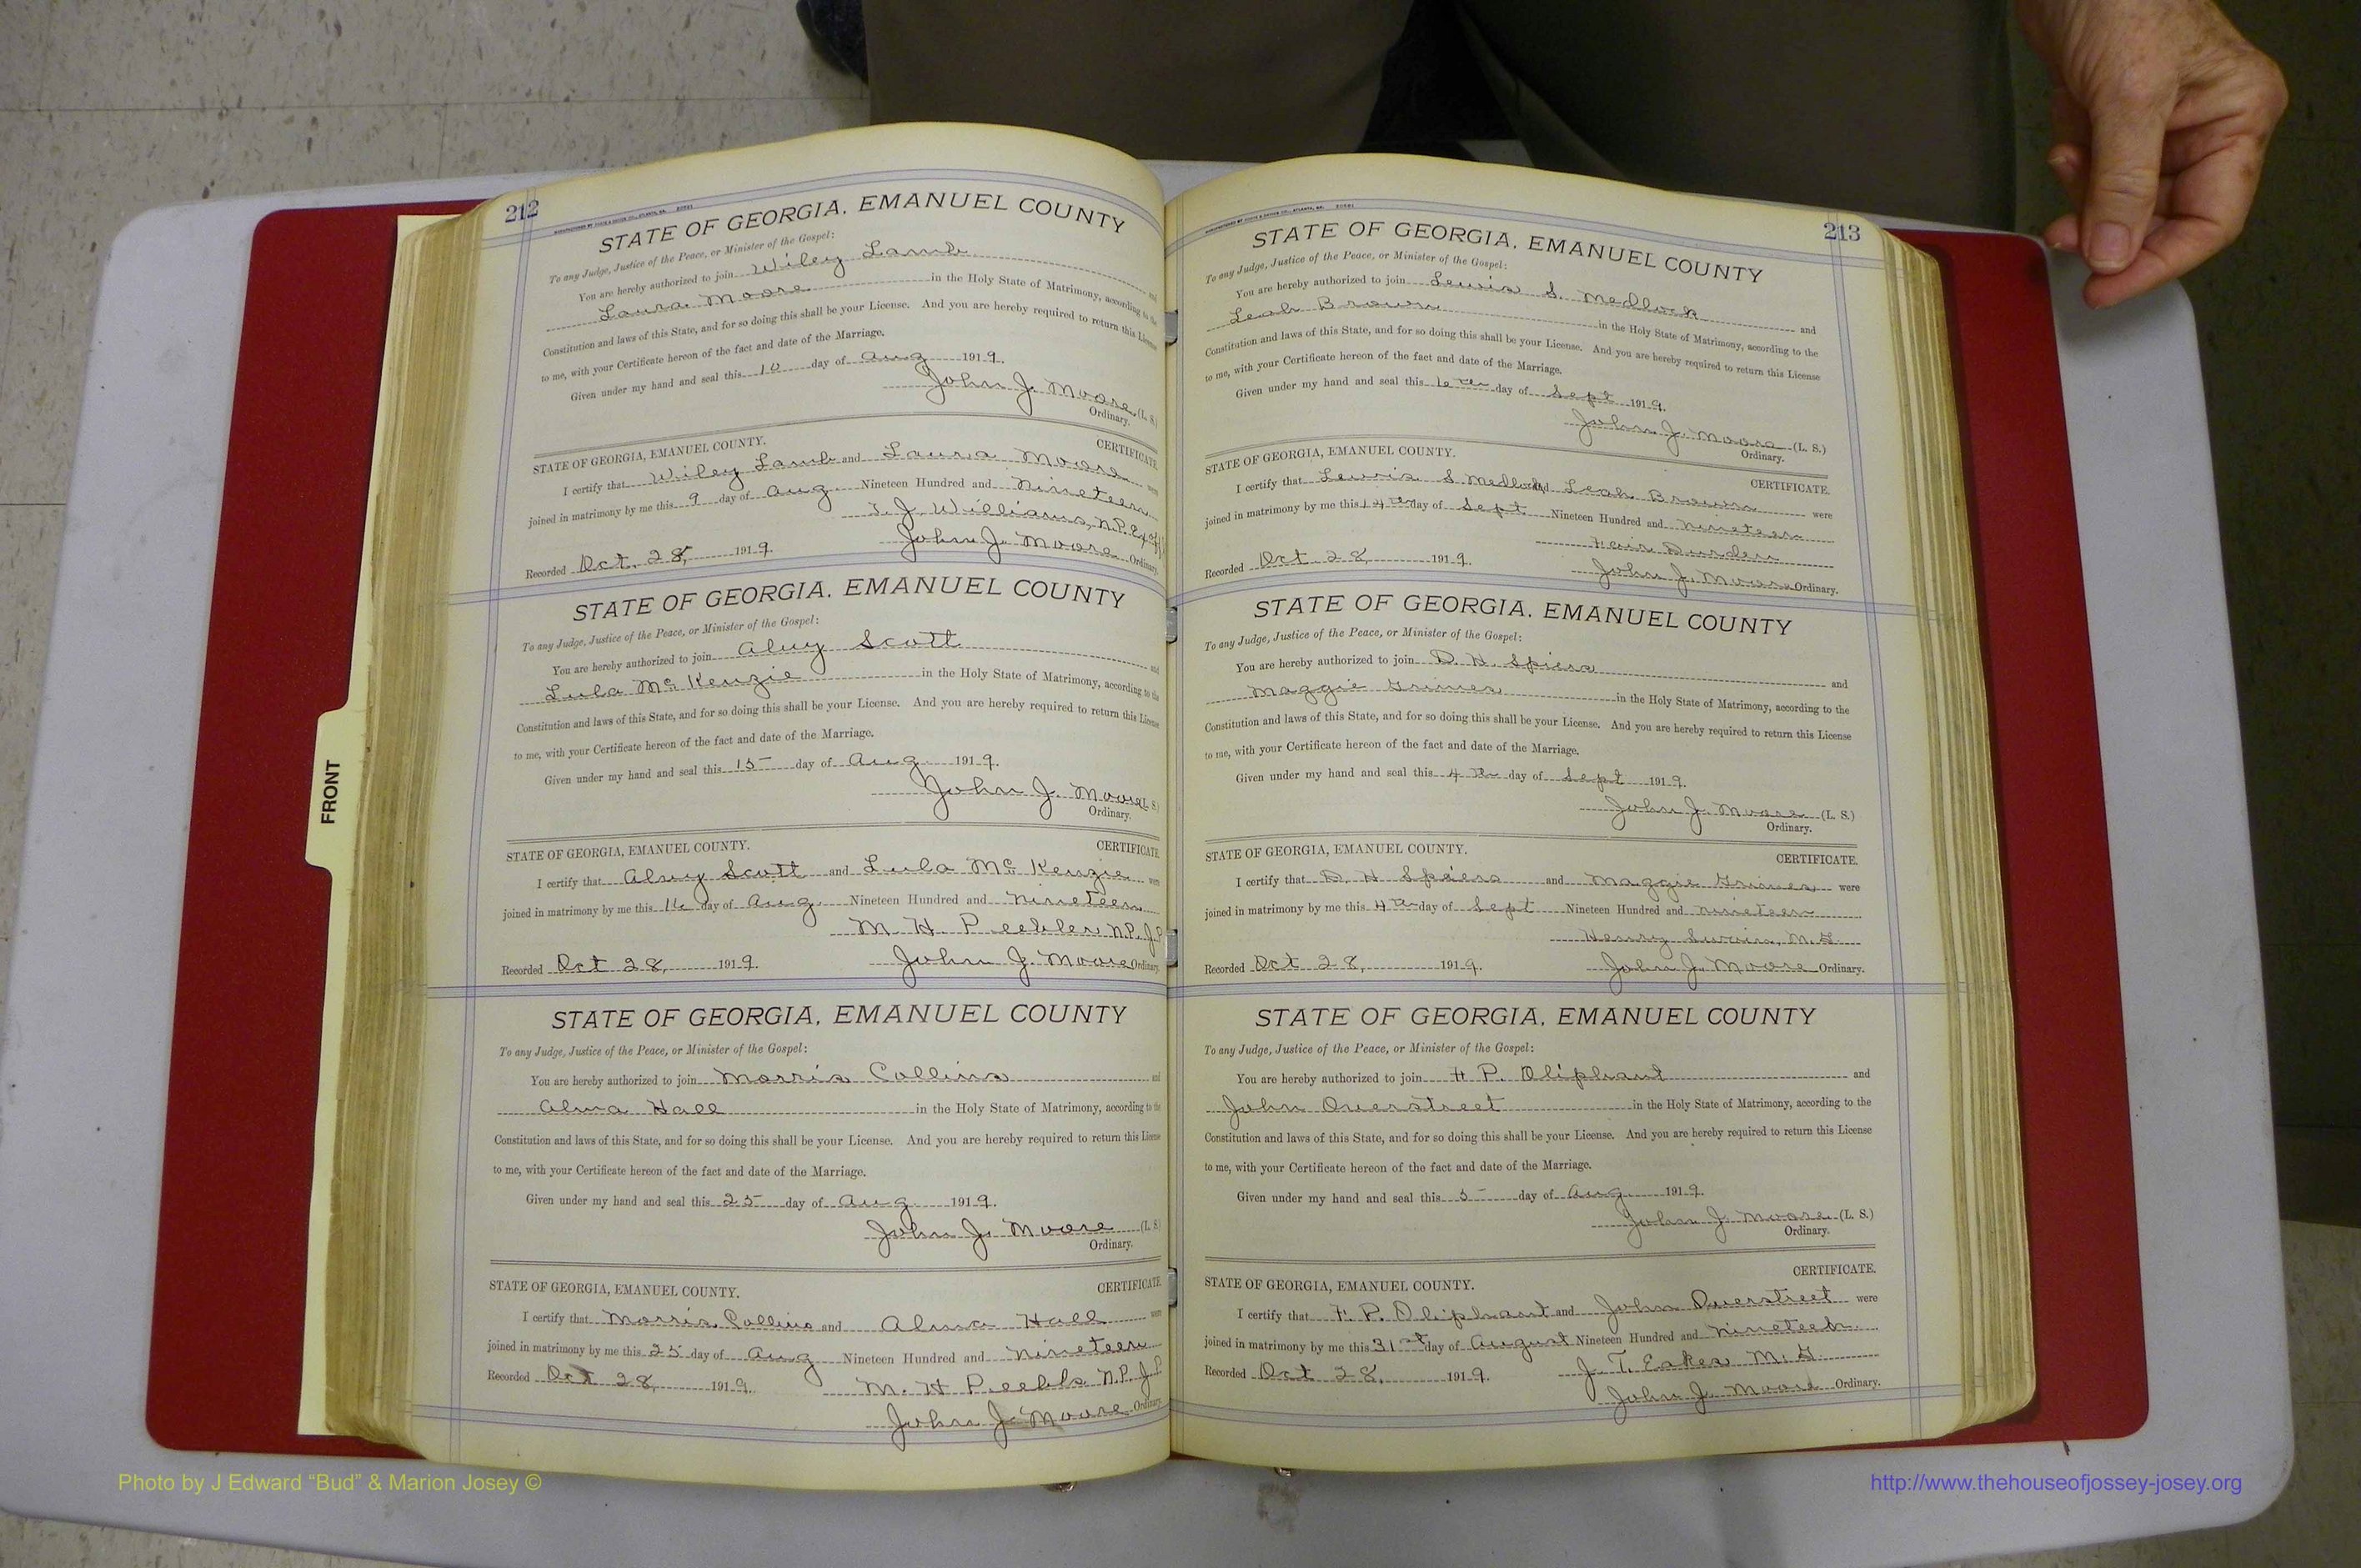 212
STATE OF GEORGIA, EMANUEL COUNTY
To any Judge, Justice of the Peace, or Minister of the Gospel:
You are hereby authorized to join Wiley Lamb and
Laura Moore in the Holy State of Matrimony, according to the
Constitution and laws of this State, and for so doing this shall be your License. And you are hereby required to return this License
to me, with your Certificate hereon of the fact and date of the Marriage.
Given under my hand and seal this 10 day of Aug 1919.
John J. Moore (L. S.)
Ordinary.
STATE OF GEORGIA, EMANUEL COUNTY. CERTIFICATE.
I certify that Wiley Lamb and Laura Moore were
joined in matrimony by me this 9 day of Aug. Nineteen Hundred and Nineteen
J. Williams, N.P.
Recorded Oct. 28, 1919. John J. Moore Ordinary.
STATE OF GEORGIA, EMANUEL COUNTY
To any Judge, Justice of the Peace, or Minister of the Gospel:
You are hereby authorized to join Alvy Scott and
Lula McKenzie in the Holy State of Matrimony, according to the
Constitution and laws of this State, and for so doing this shall be your License. And you are hereby required to return this License
to me, with your Certificate hereon of the fact and date of the Marriage.
Given under my hand and seal this 15 day of Aug 1919.
John J. Moore (L. S.)
Ordinary.
STATE OF GEORGIA, EMANUEL COUNTY. CERTIFICATE.
I certify that Alvy Scott and Lula McKenzie were
joined in matrimony by me this day of Aug. Nineteen Hundred and Nineteen
M H Peebles N.P. J.P
Recorded Oct 28, 1919. John J. Moore Ordinary.
STATE OF GEORGIA, EMANUEL COUNTY
To any Judge, Justice of the Peace, or Minister of the Gospel:
You are hereby authorized to join Morris Collins and
Alma Hall in the Holy State of Matrimony, according to the
Constitution and laws of this State, and for so doing this shall be your License. And you are hereby required to return this License
to me, with your Certificate hereon of the fact and date of the Marriage.
Given under my hand and seal this 25 day of Aug. 1919.
John J. Moore (L. S.)
Ordinary.
STATE OF GEORGIA, EMANUEL COUNTY. CERTIFICATE.
I certify that Morris Collins and Alma Hall were
joined in matrimony by me this 25 day of Aug Nineteen Hundred and Nineteen
Recorded Oct 28, 1919. M. H Peebles N.P. J.P.
John J. Moore Ordinary.
213
STATE OF GEORGIA, EMANUEL COUNTY
To any Judge, Justice of the Peace, or Minister of the Gospel:
You are hereby authorized to join Lewis S. Medlock and
Leah Brown in the Holy State of Matrimony, according to the
Constitution and laws of this State, and for so doing this shall be your License. And you are hereby required to return this License
to me, with your Certificate hereon of the fact and date of the Marriage.
Given under my hand and seal this day of Sept 1919.
John J. Moore (L. S.)
Ordinary.
STATE OF GEORGIA, EMANUEL COUNTY. CERTIFICATE.
I certify that Lewis S Medlock and Leah Brown were
joined in matrimony by me this 14th day of Sept Nineteen Hundred and nineteen
Fair Durden
Recorded Oct 28, 1919. John J. Moore Ordinary.
STATE OF GEORGIA, EMANUEL COUNTY
To any Judge, Justice of the Peace, or Minister of the Gospel:
You are hereby authorized to join D. H. Spiers and
Maggie Grimes in the Holy State of Matrimony, according to the
Constitution and laws of this State, and for so doing this shall be your License. And you are hereby required to return this License
to me, with your Certificate hereon of the fact and date of the Marriage.
Given under my hand and seal this 4th day of Sept 1919.
John J. Moore (L. S.)
Ordinary.
STATE OF GEORGIA, EMANUEL COUNTY. CERTIFICATE.
I certify that D. H Speiers and Maggie Grimes were
joined in matrimony by me this 4th day of Sept Nineteen Hundred and nineteen
Henry Swain, M.G.
Recorded Oct 28, 1919. John J. Moore Ordinary.
STATE OF GEORGIA, EMANUEL COUNTY
To any Judge, Justice of the Peace, or Minister of the Gospel:
You are hereby authorized to join F P. Oliphant and
John Overstreet in the Holy State of Matrimony, according to the
Constitution and laws of this State, and for so doing this shall be your License. And you are hereby required to return this License
to me, with your Certificate hereon of the fact and date of the Marriage.
Given under my hand and seal this 5 day of Aug. 1919.
John J. Moore (L. S.)
Ordinary.
STATE OF GEORGIA, EMANUEL COUNTY. CERTIFICATE.
I certify that F. P. Oliphant and John Overstreet were
joined in matrimony by me this 31st day of August Nineteen Hundred and Nineteen.
Recorded Oct 28, 1919. J. T. Eakes M.G.
John J. Moore Ordinary.
FRONT
Photo by J Edward “Bud” & Marion Josey ©
http://www.thehouseofjossey-josey.org